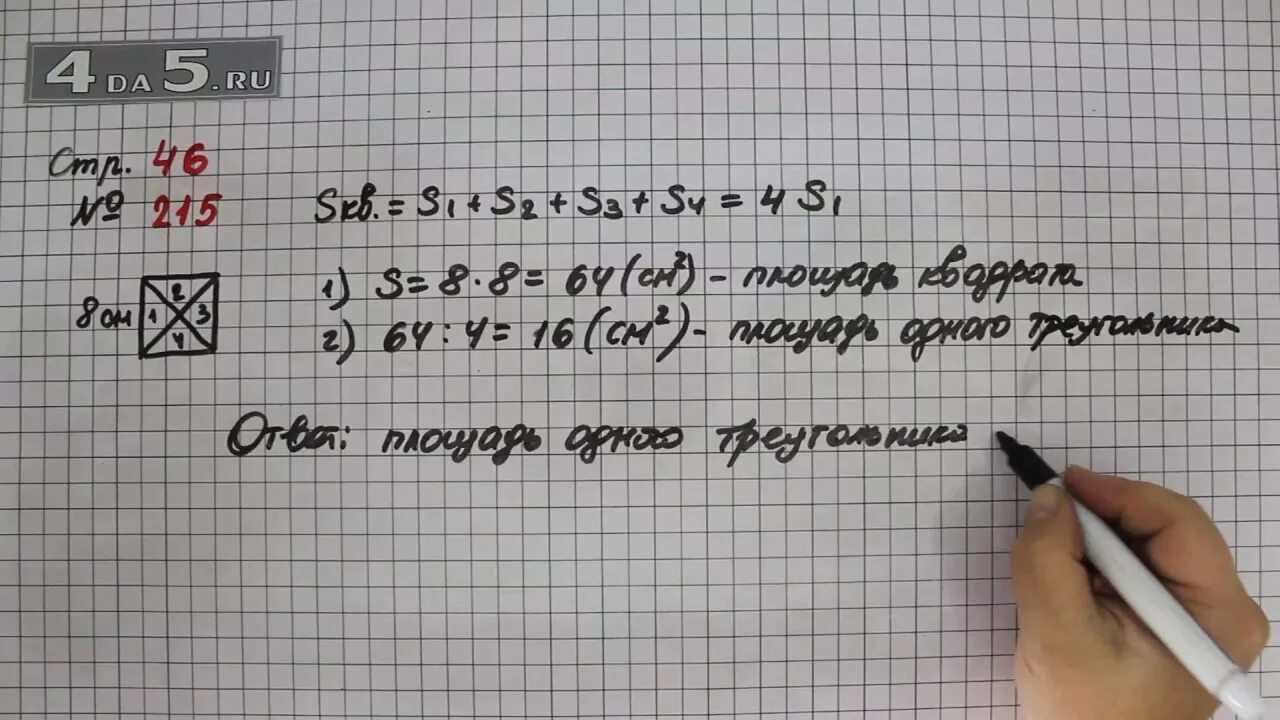 4DA5.RU
Стр. 46
№ 215
Sкв. = S1 + S2 + S3 + S4 = 4 S1
1) S = 8 · 8 = 64 (см²) - площадь квадрата
2) 64 : 4 = 16 (см²) - площадь одного треугольника
8 см
2
1 3
4
Ответ: площадь одного треугольника